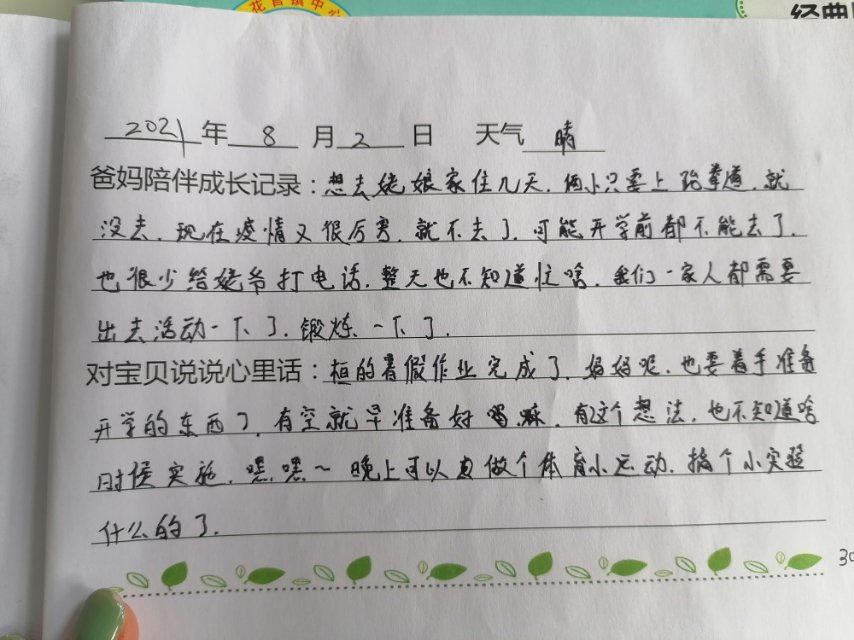 花官镇中心
经典
2021年 8 月 2 日 天气 晴
爸妈陪伴成长记录:想去姥娘家住几天,俩小只要上跆拳道,就
没去,现在疫情又很厉害,就不去了,可能开学前都不能去了,
也很少给姥爷打电话,整天也不知道忙啥,我们一家人都需要
出去活动一下了,锻炼一下了.
对宝贝说说心里话:桓的暑假作业完成了,妈妈呢,也要着手准备
开学的东西了,有空就早准备好嘛,有这个想法,也不知道啥
时候实施,嘿嘿~晚上可以做个体育小运动,搞个小实验
什么的了.
30